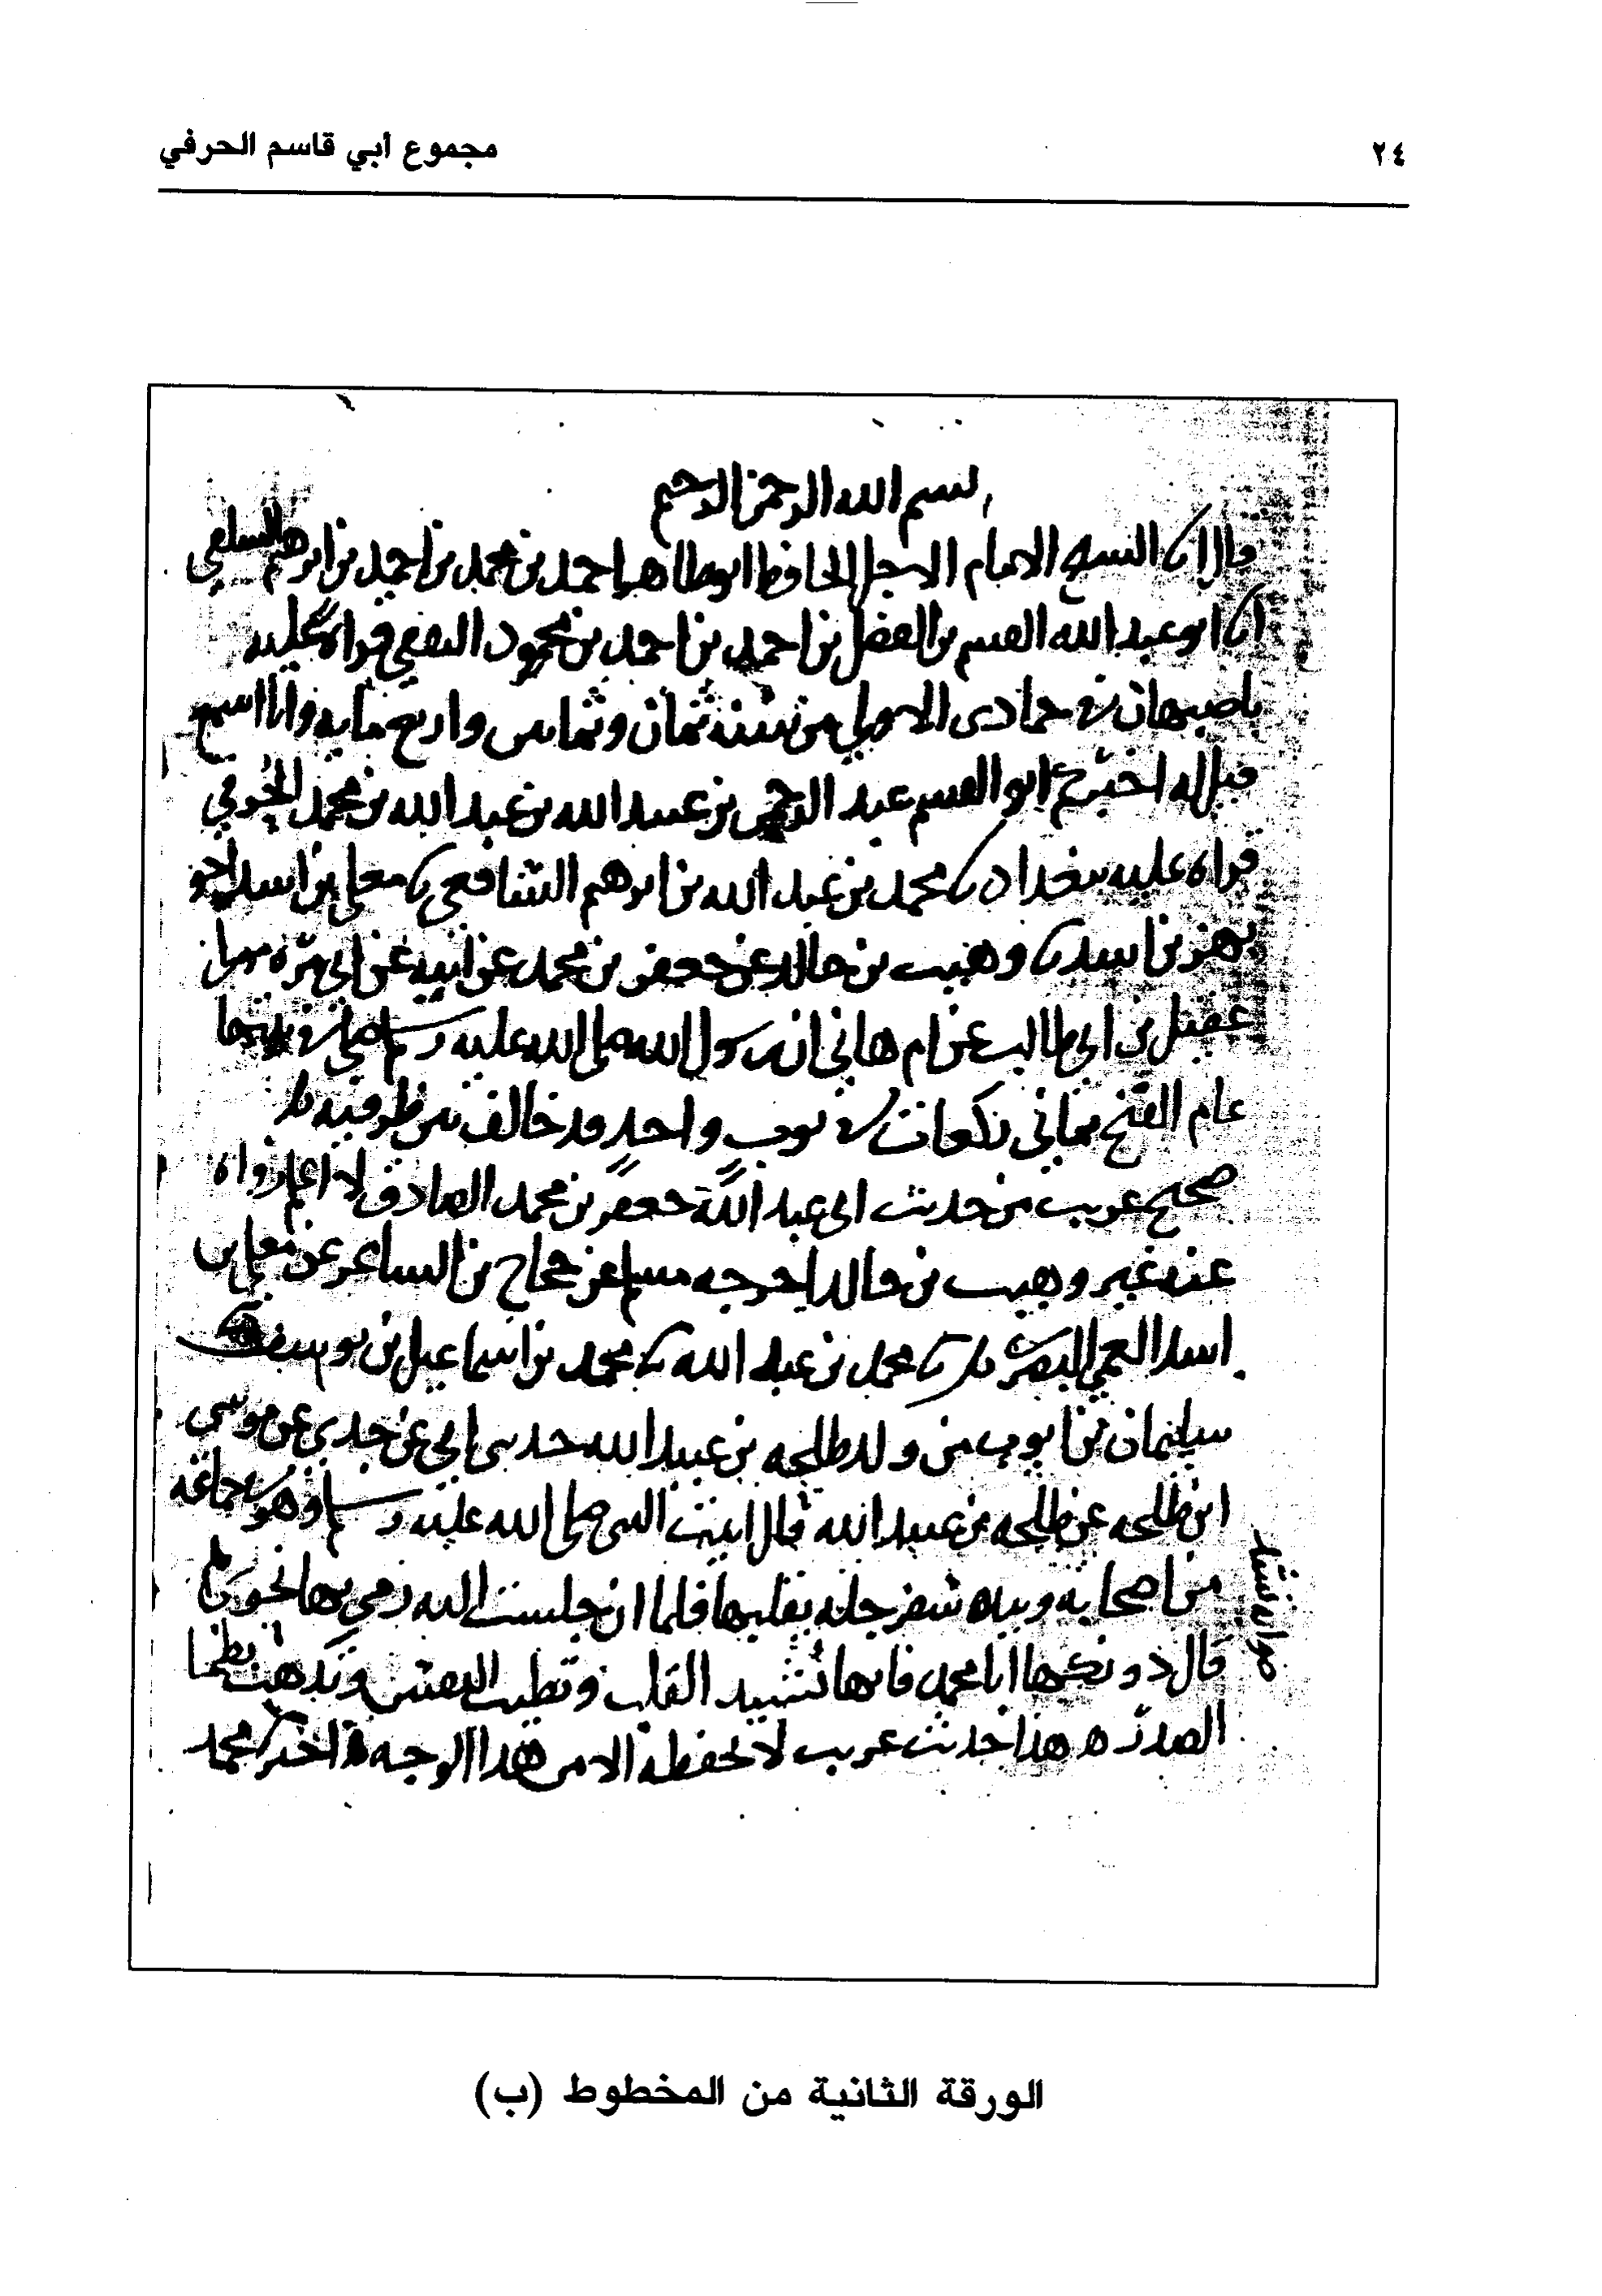 ٢٤
مجموع أبي قاسم الحرفي
بسم الله الرحمن الرحيم
الامام الاجل الحافظ ابو طاهر احمد بن محمد بن احمد بن ابرهيم السلفي
انا ابو عبد الله القسم بن الفضل بن احمد بن احمد بن محمود الثقفي قراة عليه
باصبهان في جمادى الاولى من سنة ثمان وثمانين واربع مايه وانا اسمع
قيل له اخبركم ابو القسم عبد الرحمن بن عبيد الله بن عبد الله بن محمد الحرفي
قراه عليه ببغداد نا محمد بن عبد الله بن ابرهيم الشافعي نا معلى بن اسد اخو
بهز بن اسد نا وهيب بن خالد عن جعفر بن محمد عن ابيه عن ابي مره مولى
عقيل بن ابي طالب عن ام هاني ان رسول الله صلى الله عليه وسلم صلى في بيتها
عام الفتح ثماني ركعات في ثوب واحد قد خالف بين طرفيه
صحيح غريب من حديث ابي عبد الله جعفر بن محمد الصادق لا اعلم رواه
عنه غير وهيب بن خالد اخرجه مسلم عن حجاج بن الشاعر عن معلى بن
اسد العمي البصري نا محمد بن عبد الله نا محمد بن اسماعيل بن يوسف
سليمان بن ايوب من ولد طلحه بن عبيد الله حدثني ابي عن جدي عن موسى
ابن طلحه عن طلحه بن عبيد الله قال اتيت النبي صلى الله عليه وسلم وهو في جماعه
من اصحابه وبيده سفرجله يقلبها فلما ان جلست اليه رمى بها نحوي
قال دونكها ابا محمد فانها تشد القلب وتطيب النفس وتذهب بطخا
صوابه تشد
الصدر ه هذا حديث غريب لا نحفظه الا من هذا الوجه ه اخبرنا محمد
الورقة الثانية من المخطوط (ب)